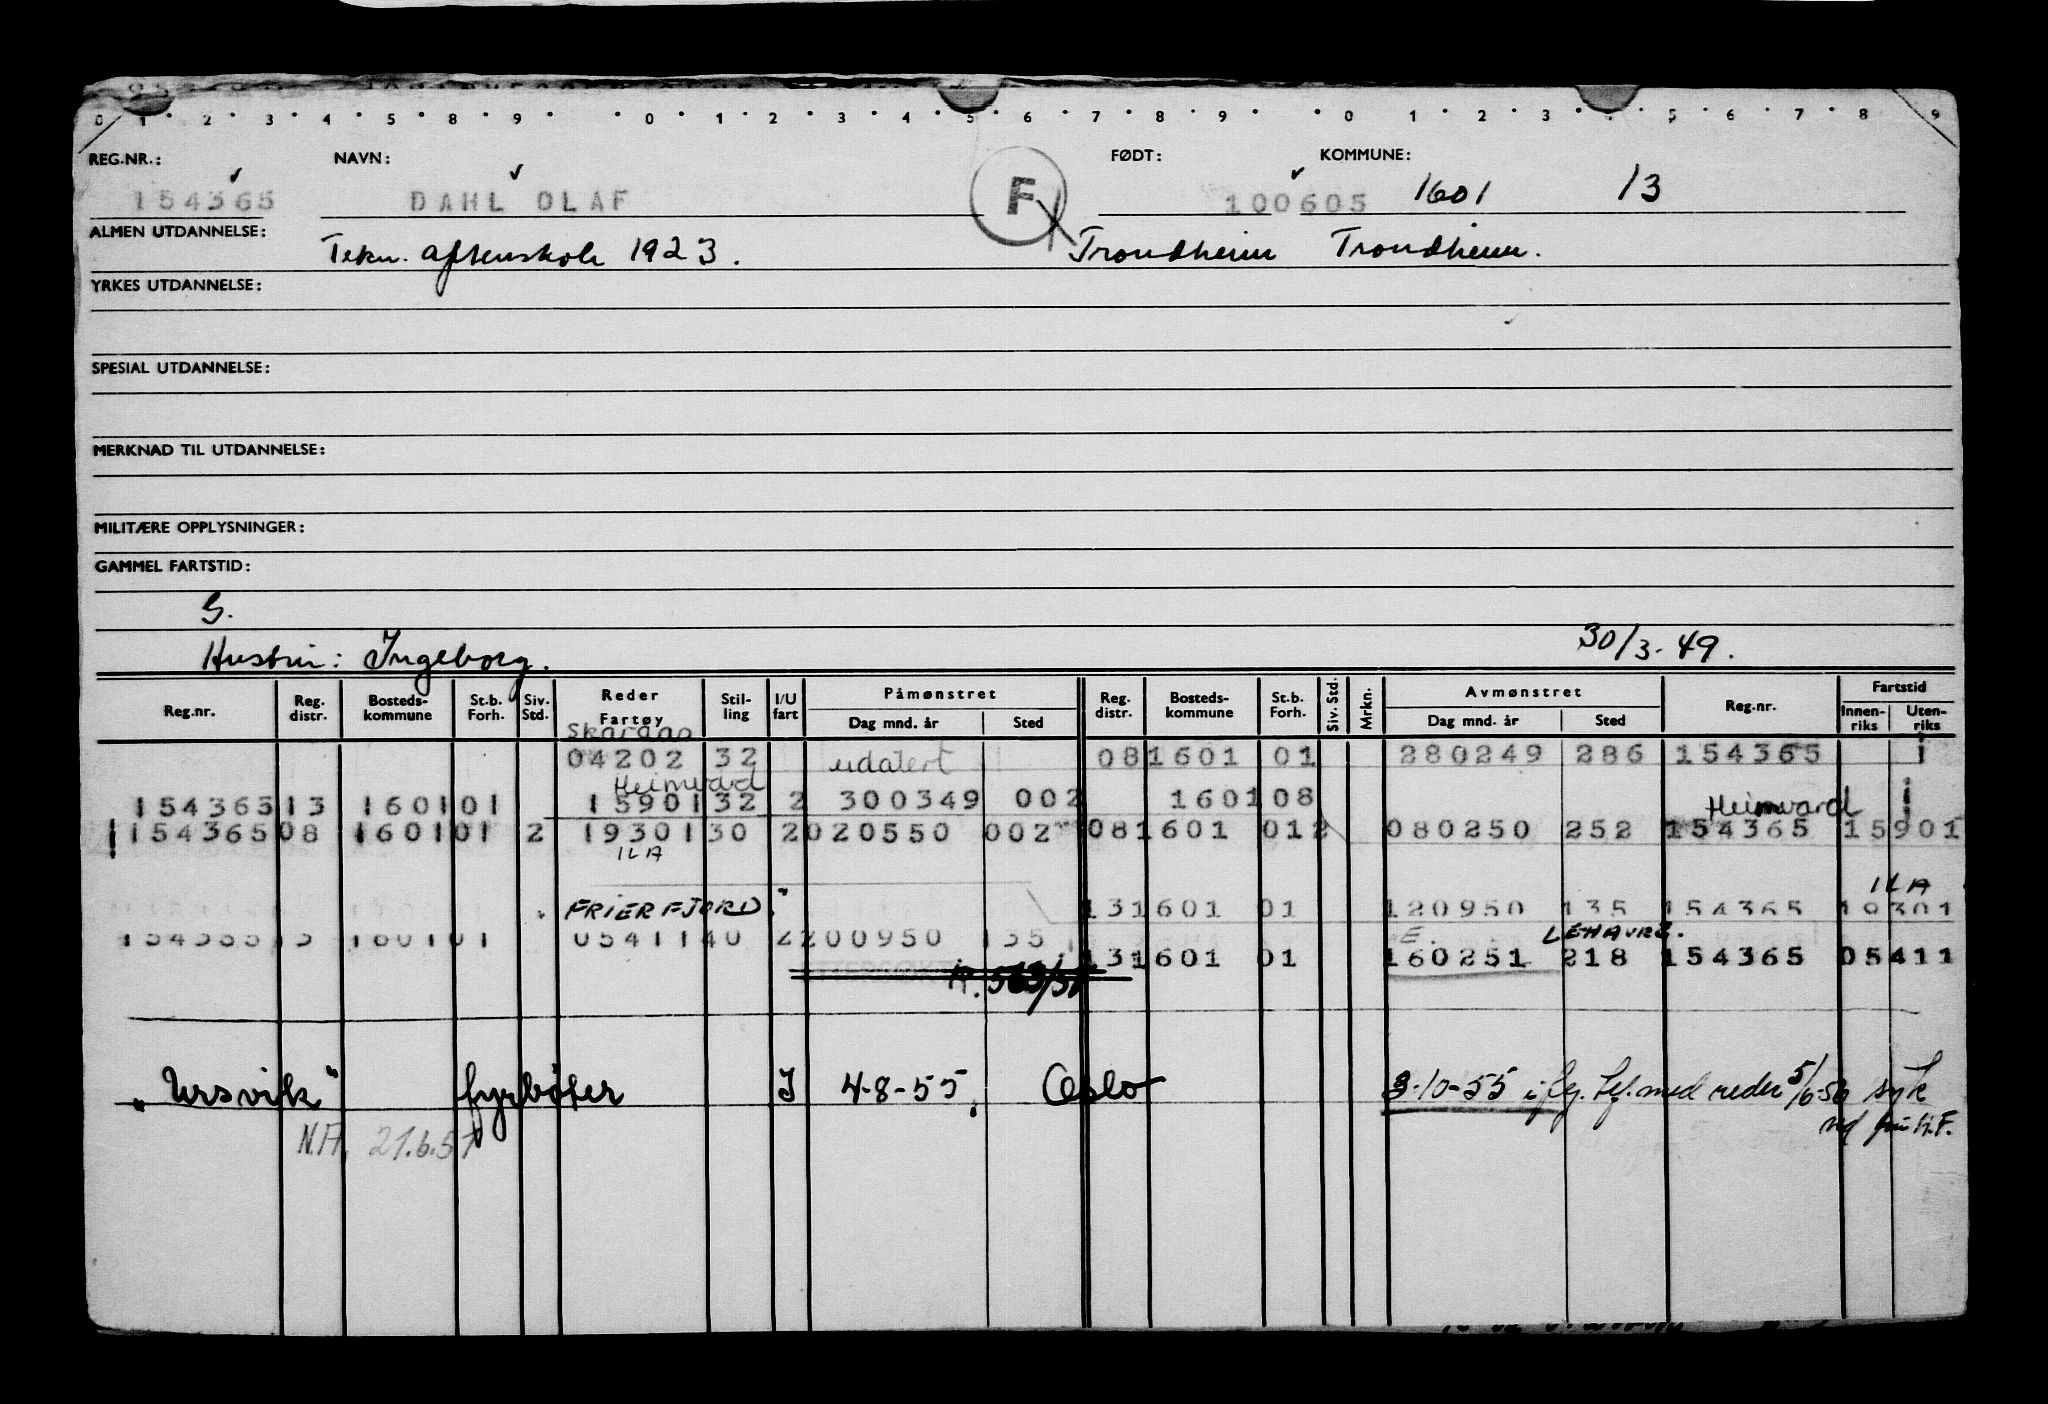 0 1 2 3 4 5 8 9 0 1 2 3 4 5 6 7 8 9 0 1 2 3 5 6 7 8 9
REG.NR.: NAVN: FØDT: KOMMUNE:
154365 DAHL OLAF F 100605 1601 13
ALMEN UTDANNELSE: Tekn. aftenskole 1923. Trondheim Trondheim.
YRKES UTDANNELSE:
SPESIAL UTDANNELSE:
MERKNAD TIL UTDANNELSE:
MILITÆRE OPPLYSNINGER:
GAMMEL FARTSTID:
G.
Hustru: Ingeborg. 30/3-49.
Reg.nr. Reg. distr. Bosteds-kommune St.b. Forh. Siv. Std. Reder Fartøy Stil-ling I/U fart Påmønstret Dag mnd. år Sted Reg. distr. Bosteds-kommune St.b. Forh. Siv. Std. Mrkn. Avmønstret Dag mnd. år Sted Reg.nr. Fartstid Innen-riks Uten-riks
Skaraas
04202 32 udatert 08 1601 01 280249 286 154365 1
Heimvard
154365 13 1601 01 15901 32 2 300349 002 1601 08 Heimvard
154365 08 1601 01 2 19301 30 2 020550 002 08 1601 01 2 080250 252 154365 15901
ILA
ILA
FRIERFJORD." 13 1601 01 120950 135 154365 19301
154365 13 1601 01 05411 40 2 200950 135 E. LEHAVRE.
13 1601 01 160251 218 154365 05411
ETTERSØKT A. 563/51
"Ursvik" fyrbøter I 4-8-55, Oslo 3-10-55 i flg. tlf. med reder 5/6-56 syk
N.A. 21.6.57